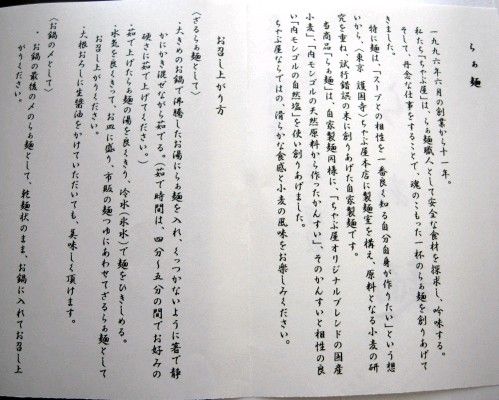 らぁ麺
一九九六年六月の創業から十一年。
私たち「ちゃぶ屋」は、らぁ麺職人として安全な食材を探求し、吟味する。
そして、丹念な仕事をすることで、魂のこもった一杯のらぁ麺を創りあげて
きました。
特に麺は、「スープとの相性を一番良く知る自分自身が作りたい」という想
いから、〈東京 護国寺〉ちゃぶ屋本店に製麺室を構え、原料となる小麦の研
究を重ね、試行錯誤の末に創りあげた自家製麺です。
当商品「らぁ麺」は、自家製麺同様に、「ちゃぶ屋オリジナルブレンドの国産
小麦」、「内モンゴルの天然原料から作ったかんすい」、そのかんすいと相性の良
い「内モンゴルの自然塩」を使い創りあげました。
ちゃぶ屋ならではの、清らかな食感と小麦の風味をお楽しみください。
お召し上がり方
〈ざるらぁ麺として〉
・大きめのお鍋で沸騰したお湯にらぁ麺を入れ、くっつかないように箸で静
かにかき混ぜながら茹でる。（茹で時間は、四分〜五分の間でお好みの
硬さに茹で上げてください。）
・茹で上げたらぁ麺の湯を良くきり、冷水（氷水）で麺をひきしめる。
・水気を良くきって、お皿に盛り、市販の麺つゆにあわせてざるらぁ麺として
お召し上がりください。
・大根おろしに生醤油をかけていただいても、美味しく頂けます。
〈お鍋の〆として〉
・お鍋の最後の〆のらぁ麺として、乾麺状のまま、お鍋に入れてお召し上
がりください。